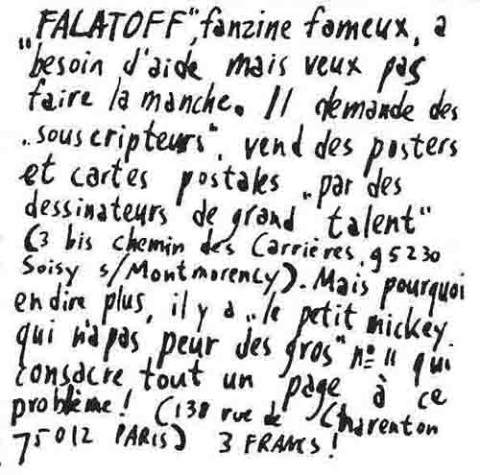 „FALATOFF", fanzine fameux, a
besoin d'aide mais veux pas
faire la manche. Il demande des
„souscripteurs", vend des posters
et cartes postales „par des
dessinateurs de grand talent"
(3 bis chemin des Carrières, 95230
Soisy s/Montmorency). Mais pourquoi
en dire plus, il y a „le petit mickey
qui n'a pas peur des gros" nº 11 qui
consacre tout un page à ce
problème! (138 rue de Charenton
75012 PARIS) 3 FRANCS!